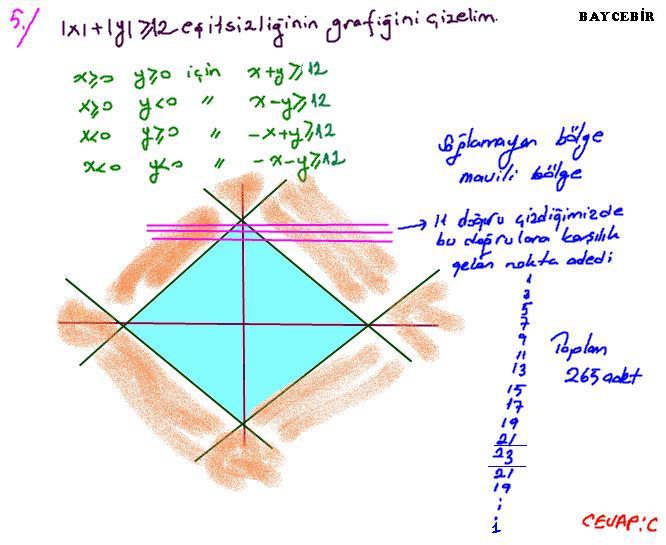 5./ |x|+|y| ≥ 12 eşitsizliğinin grafiğini çizelim.
BAYCEBİR
x≥0 y≥0 için x+y≥12
x≥0 y<0 " x-y≥12
x<0 y≥0 " -x+y≥12
x<0 y<0 " -x-y≥12
sağlamayan bölge
mavili bölge
→ 11 doğuru çizdiğimizde
bu doğrulara karşılık
gelen nokta adedi
1
3
5
7
9
11
13
15
17
19
21
23
21
19
⋮
1
Toplam
265 adet
CEVAP: C